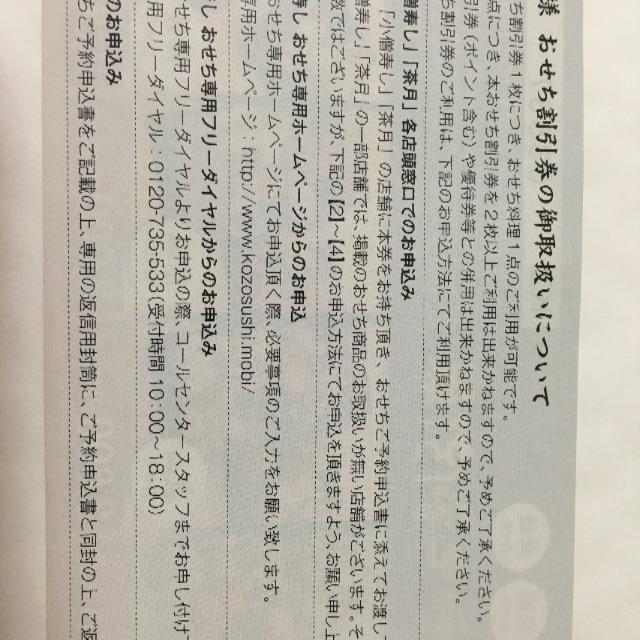 様 おせち割引券の御取扱いについて
ち割引券1枚につき、おせち料理1点のご利用が可能です。
点につき、本おせち割引券を2枚以上ご利用は出来かねますので、予めご了承ください。
引券（ポイント含む）や優待券等との併用は出来かねますので、予めご了承ください。
ち割引券のご利用は、下記のお申込方法にてご利用頂けます。
僧寿し」「茶月」各店頭窓口でのお申込み
「小僧寿し」「茶月」の店舗に本券をお持ち頂き、おせちご予約申込書に添えてお渡し
僧寿し」「茶月」の一部店舗では、掲載のおせち商品のお取扱いが無い店舗がございます。そ
数ではございますが、下記の【2】～【4】のお申込方法にてお申込を頂きますよう、お願い申し上
寿し おせち専用ホームページからのお申込
おせち専用ホームページにてお申込頂く際、必要事項のご入力をお願い致します。
専用ホームページ：http://www.kozosushi.mobi/
し おせち専用フリーダイヤルからのお申込み
せち専用フリーダイヤルよりお申込の際、コールセンタースタッフまでお申し付け
用フリーダイヤル：0120-735-533（受付時間 10：00～18：00）
のお申込み
ちご予約申込書をご記載の上、専用の返信用封筒に、ご予約申込書と同封の上、ご返